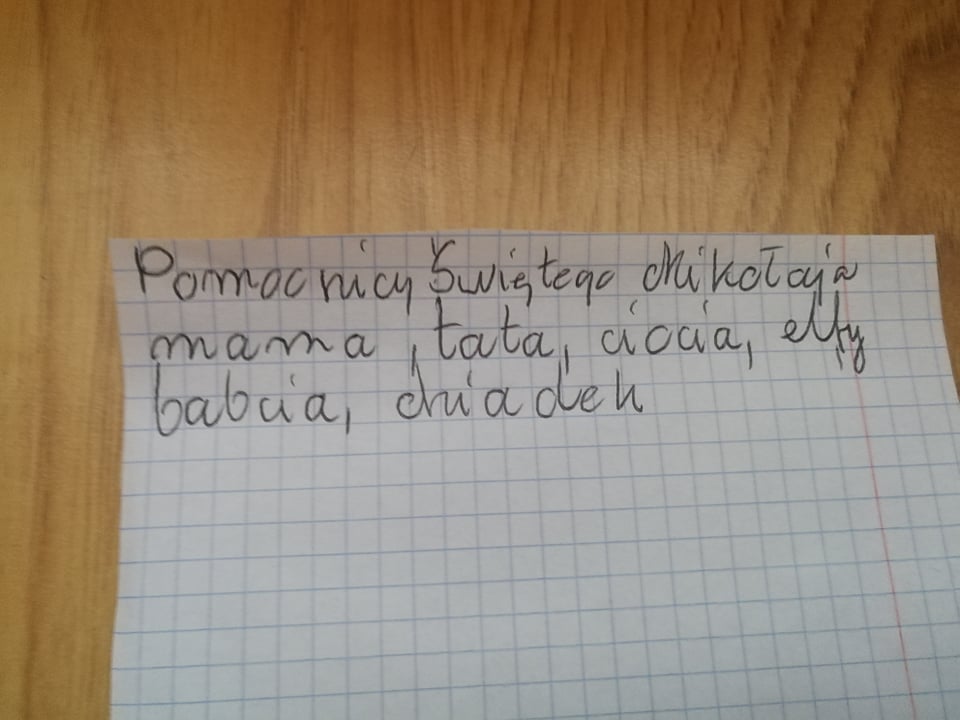 Pomocnicy Świętego Mikołaja
mama, tata, ciocia, elfy
babcia, dziadek